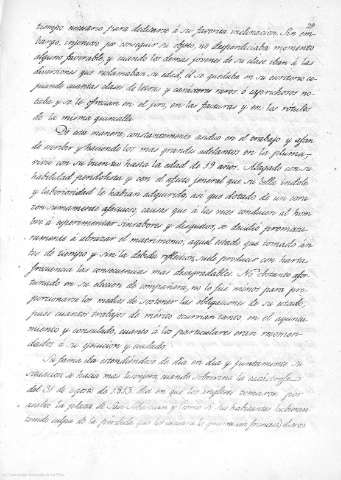 29
tiempo necesario para dedicarlo á su favorita inclinacion. Sin em-
bargo, ingenioso para conseguir su objeto, no desperdiciaba momento
alguno favorable, y cuando los demas jovenes de su clase iban á las
diversiones que reclamaban su edad, él se quedaba en su escritorio co-
piando cuantas clases de letras y caractéres raros ó esparcidores no-
taba y se le ofrecian en el giro, en las facturas y en los rótulos
de la misma quincalla.
De esta manera, constantemente asiduo en el trabajo y afan
de escribir y haciendo los mas grandes adelantos en la pluma,
vivió con su buen tio hasta la edad de 19 años. Alagado con su
habilidad pendolista y con el afecto jeneral que su bella indole
y laboriosidad le habian adquirido, asi que dotado de un cora-
zon sumamente afectuoso, causas que á las veces conducen al hom-
bre á experimentar sinsabores y disgustos, se decidió prematu-
ramente á abrazar el matrimonio, aquel estado que tomado an-
tes de tiempo y sin la debida reflexion, suele producir con harta
frecuencia las consecuencias mas desagradables. No obstante afor-
tunado en su eleccion de compañera, no lo fué menos para pro-
porcionarse los medios de sostener las obligaciones de su estado,
pues cuantos trabajos de mérito ocurrian tanto en el ayunta-
miento y consulado, cuanto á los particulares eran recomen-
dados á su ejecucion y cuidado.
Su fama iba estendiendose de dia en dia y juntamente su
situacion se hacia mas lisonjera, cuando sobrevino la catástrofe
del 31 de agosto de 1813, dia en que los ingleses tomaron por
asalto la plaza de San Sebastian y como si sus habitantes hubieran
tenido culpa de la pérdida que les causara la guarnicion francesa,